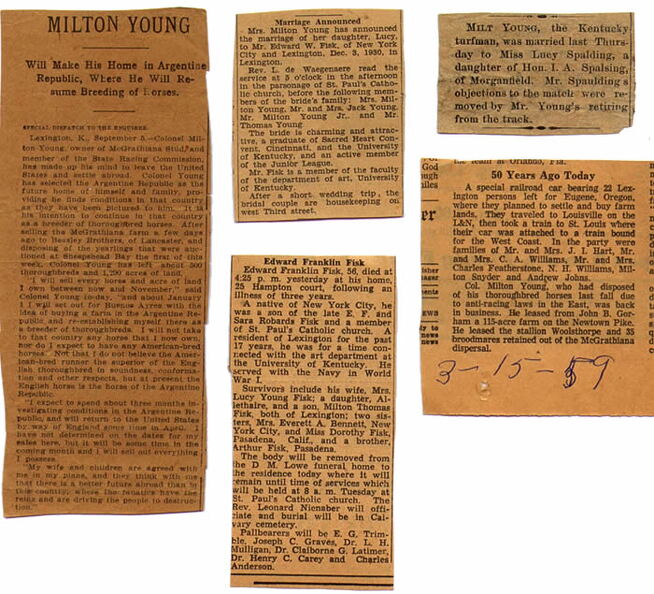 MILTON YOUNG
Will Make His Home in Argentine
Republic, Where He Will Re-
sume Breeding of Horses.
SPECIAL DISPATCH TO THE ENQUIRER.
Lexington, K., September 5.—Colonel Mil-
ton Young, owner of McGrathiana Stud, and
member of the State Racing Commission,
has made up his mind to leave the United
States and settle abroad. Colonel Young
has selected the Argentine Republic as the
future home of himself and family, pro-
viding he finds conditions in that country
as they have been pictured to him. It is
his intention to continue in that country
as a breeder of thoroughbred horses. After
selling the McGrathiana farm a few days
ago to Beasley Brothers, of Lancaster, and
disposing of the yearlings that were auc-
tioned at Sheepshead Bay the first of this
week, Colonel Young has left about 500
thoroughbreds and 1,200 acres of land.
"I will sell every horse and acre of land
I own between now and November," said
Colonel Young to-day, "and about January
1 I will set out for Buenos Ayres with the
idea of buying a farm in the Argentine Re-
public and re-establishing myself there as
a breeder of thoroughbreds. I will not take
to that country any horse that I now own,
nor do I expect to have any American-bred
horses. Not that I do not believe the Amer-
ican-bred runner the superior of the Eng-
lish thoroughbred in soundness, confor-
mation and other respects, but at present the
English horse is the horse of the Argentine
Republic.
"I expect to spend about three months in-
vestigating conditions in the Argentine Re-
public, and will return to the United States
by way of England some time in April. I
have not determined on the dates for my
sales here, but it will be some time in the
coming month and I will sell out everything
I possess.
"My wife and children are agreed with
me in my plans, and they think with me
that there is a better future abroad than in
this country, where the fanatics have the
reins and are driving the people to destruc-
tion."
Marriage Announced
Mrs. Milton Young has announced
the marriage of her daughter, Lucy,
to Mr. Edward W. Fisk, of New York
City and Lexington, Dec. 3, 1930, in
Lexington.
Rev. L. de Waegenaere read the
service at 5 o'clock in the afternoon
in the parsonage of St. Paul's Catho-
lic church, before the following mem-
bers of the bride's family: Mrs. Mil-
ton Young, Mr. and Mrs. Jack Young,
Mr. Milton Young Jr., and Mr.
Thomas Young
The bride is charming and attrac-
tive, a graduate of Sacred Heart Con-
vent, Cincinnati, and the University
of Kentucky, and an active member
of the Junior League.
Mr. Fisk is a member of the faculty
of the department of art, University
of Kentucky.
After a short wedding trip, the
bridal couple are housekeeping on
west Third street.
Edward Franklin Fisk
Edward Franklin Fisk, 56, died at
4:25 p. m. yesterday at his home,
25 Hampton court, following an
illness of three years.
A native of New York City, he
was a son of the late E. F. and
Sara Robards Fisk and a member
of St. Paul's Catholic church. A
resident of Lexington for the past
17 years, he was for a time con-
nected with the art department at
the University of Kentucky. He
served with the Navy in World
War I.
Survivors include his wife, Mrs.
Lucy Young Fisk; a daughter, Al-
lethaire, and a son, Milton Thomas
Fisk, both of Lexington; two sis-
ters, Mrs. Everett A. Bennett, New
York City, and Miss Dorothy Fisk,
Pasadena, Calif., and a brother,
Arthur Fisk, Pasadena.
The body will be removed from
the D M. Lowe funeral home to
the residence today where it will
remain until time of services which
will be held at 8 a. m. Tuesday at
St. Paul's Catholic church. The
Rev. Leonard Nienaber will offi-
ciate and burial will be in Cal-
vary cemetery.
Pallbearers will be E. G. Trim-
ble, Joseph C. Graves, Dr. L. H.
Mulligan, Dr. Claiborne G. Latimer,
Dr. Henry C. Carey and Charles
Anderson.
MILT YOUNG, the Kentucky
turfman, was married last Thurs-
day to Miss Lucy Spalding, a
daughter of Hon. I. A. Spalsing,
of Morganfield. Mr. Spaulding's
objections to the match were re-
moved by Mr. Young's retiring
from the track.
50 Years Ago Today
A special railroad car bearing 22 Lex-
ington persons left for Eugene, Oregon,
where they planned to settle and buy farm
lands. They traveled to Louisville on the
L&N, then took a train to St. Louis where
their car was attached to a train bound
for the West Coast. In the party were
families of Mr. and Mrs. J. I. Hart, Mr.
and Mrs. C. A. Williams, Mr. and Mrs.
Charles Featherstone, N. H. Williams, Mil-
ton Snyder and Andrew Johns.
Col. Milton Young, who had disposed
of his thoroughbred horses last fall due
to anti-racing laws in the East, was back
in business. He leased from John B. Gor-
ham a 115-acre farm on the Newtown Pike.
He leased the stallion Woolsthorpe and 35
broodmares retained out of the McGrathiana
dispersal.
3-15-59